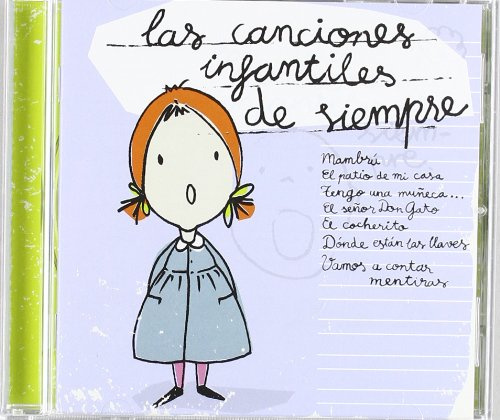 las canciones
infantiles
de siempre
Mambrú
El patio de mi casa
Tengo una muñeca...
El señor Don Gato
El cocherito
Dónde están las llaves
Vamos a contar
mentiras